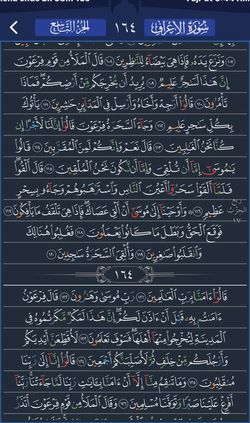 سُورَةُ الأَعْرَافِ
١٦٤
الجُزْءُ التَّاسِعُ
وَنَزَعَ يَدَهُۥ فَإِذَا هِىَ بَيْضَآءُ لِلنَّٰظِرِينَ ١٠٨ قَالَ ٱلْمَلَأُ مِن قَوْمِ فِرْعَوْنَ
إِنَّ هَٰذَا لَسَٰحِرٌ عَلِيمٌ ١٠٩ يُرِيدُ أَن يُخْرِجَكُم مِّنْ أَرْضِكُمْ فَمَاذَا
تَأْمُرُونَ ١١٠ قَالُوٓا۟ أَرْجِهْ وَأَخَاهُ وَأَرْسِلْ فِى ٱلْمَدَآئِنِ حَٰشِرِينَ ١١١ يَأْتُوكَ
بِكُلِّ سَٰحِرٍ عَلِيمٍ ١١٢ وَجَآءَ ٱلسَّحَرَةُ فِرْعَوْنَ قَالُوٓا۟ إِنَّ لَنَا لَأَجْرًا إِن
كُنَّا نَحْنُ ٱلْغَٰلِبِينَ ١١٣ قَالَ نَعَمْ وَإِنَّكُمْ لَمِنَ ٱلْمُقَرَّبِينَ ١١٤ قَالُوا۟
يَٰمُوسَىٰٓ إِمَّآ أَن تُلْقِىَ وَإِمَّآ أَن نَّكُونَ نَحْنُ ٱلْمُلْقِينَ ١١٥ قَالَ أَلْقُوا۟
فَلَمَّآ أَلْقَوْا۟ سَحَرُوٓا۟ أَعْيُنَ ٱلنَّاسِ وَٱسْتَرْهَبُوهُمْ وَجَآءُو بِسِحْرٍ
عَظِيمٍ ١١٦ وَأَوْحَيْنَآ إِلَىٰ مُوسَىٰٓ أَنْ أَلْقِ عَصَاكَ فَإِذَا هِىَ تَلْقَفُ مَا يَأْفِكُونَ ١١٧
فَوَقَعَ ٱلْحَقُّ وَبَطَلَ مَا كَانُوا۟ يَعْمَلُونَ ١١٨ فَغُلِبُوا۟ هُنَالِكَ
وَٱنقَلَبُوا۟ صَٰغِرِينَ ١١٩ وَأُلْقِىَ ٱلسَّحَرَةُ سَٰجِدِينَ ١٢٠
١٦٤
قَالُوٓا۟ ءَامَنَّا بِرَبِّ ٱلْعَٰلَمِينَ ١٢١ رَبِّ مُوسَىٰ وَهَٰرُونَ ١٢٢ قَالَ فِرْعَوْنُ
ءَامَنتُم بِهِۦ قَبْلَ أَنْ ءَاذَنَ لَكُمْ إِنَّ هَٰذَا لَمَكْرٌ مَّكَرْتُمُوهُ فِى
ٱلْمَدِينَةِ لِتُخْرِجُوا۟ مِنْهَآ أَهْلَهَا فَسَوْفَ تَعْلَمُونَ ١٢٣ لَأُقَطِّعَنَّ أَيْدِيَكُمْ
وَأَرْجُلَكُم مِّنْ خِلَٰفٍ ثُمَّ لَأُصَلِّبَنَّكُمْ أَجْمَعِينَ ١٢٤ قَالُوٓا۟ إِنَّآ إِلَىٰ رَبِّنَا
مُنقَلِبُونَ ١٢٥ وَمَا تَنقِمُ مِنَّآ إِلَّآ أَنْ ءَامَنَّا بِـَٔايَٰتِ رَبِّنَا لَمَّا جَآءَتْنَا رَبَّنَآ
أَفْرِغْ عَلَيْنَا صَبْرًا وَتَوَفَّنَا مُسْلِمِينَ ١٢٦ وَقَالَ ٱلْمَلَأُ مِن قَوْمِ فِرْعَوْنَ أَتَذَرُ